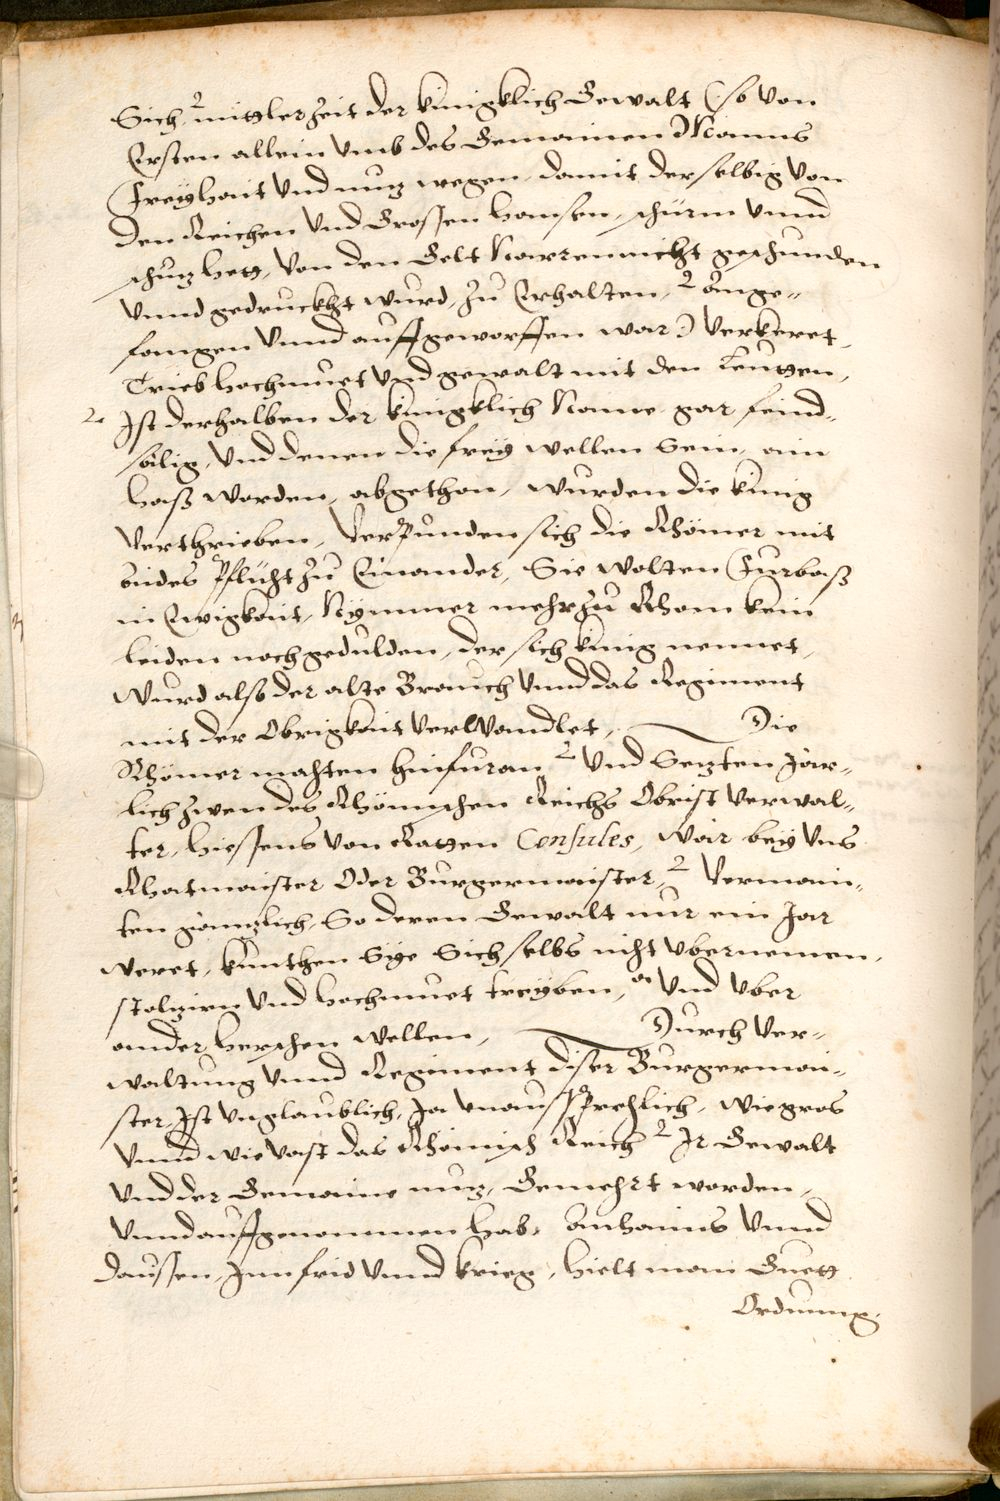 Sich, mittlerzeit der künigklich Gewalt (so von
Ersten allein vmb des Gemainen Manns
Freyhait vnd nuz wegen, damit derselbig von
den Reichen vnd Grossen hansen, schürm vnnd
schuz hett, von den Gelt Narren nicht geschunden
vnnd gedruckht wurd, zu Erhalten, ange„
fangen vnnd auffgeworffen war) verkeret,
Trieb hochmuet vnd gewalt mit den Leutten,
Ist derhalben der künigklich Name gar feind„
sälig, vnd denen die frey wellen Sein, ain
haß worden, abgethan, wurden die künig
verthrieben, verpunden sich die Rhömer mit
aides Pflicht zu Einander, Sie wolten Furbaß
in Ewigkait, Nymmer mehr zu Rhom kein
leiden noch gedulden, der sich künig nennet,
Wurd also der alte Brauch vnnd das Regiment
mit der Obrigkait verWandlet, Die
Rhömer machten hinfuran vnd Sezten Jär„
lich zwen des Rhömischen Reichs Obrist verwal„
ter, hiessens von Ratten Consules, Wär bey vns
Rhatmaister Oder Burgermaister, Vermain„
ten gänzlich, So deren Gewalt nur ein Jar
weret, kunthen Sye Sich selbs nicht vbernemen,
stolzirn vnd hochmuet treyben, vnd vber
ander herschen wellen, Durch ver„
waltung vnnd Regiment diser Burgermai„
ster, Ist vnglaublich, Ja vnaussprechlich, Wie gros
vnnd wie vast das Rhömisch Reich Ir Gewalt
vnd der Gemaine nuz, Gemehrt worden,
vnnd auffgenommen hab, Anhaims vnnd
daussen, Inn frid vnnd krieg, hielt man Guett
Ordnung,